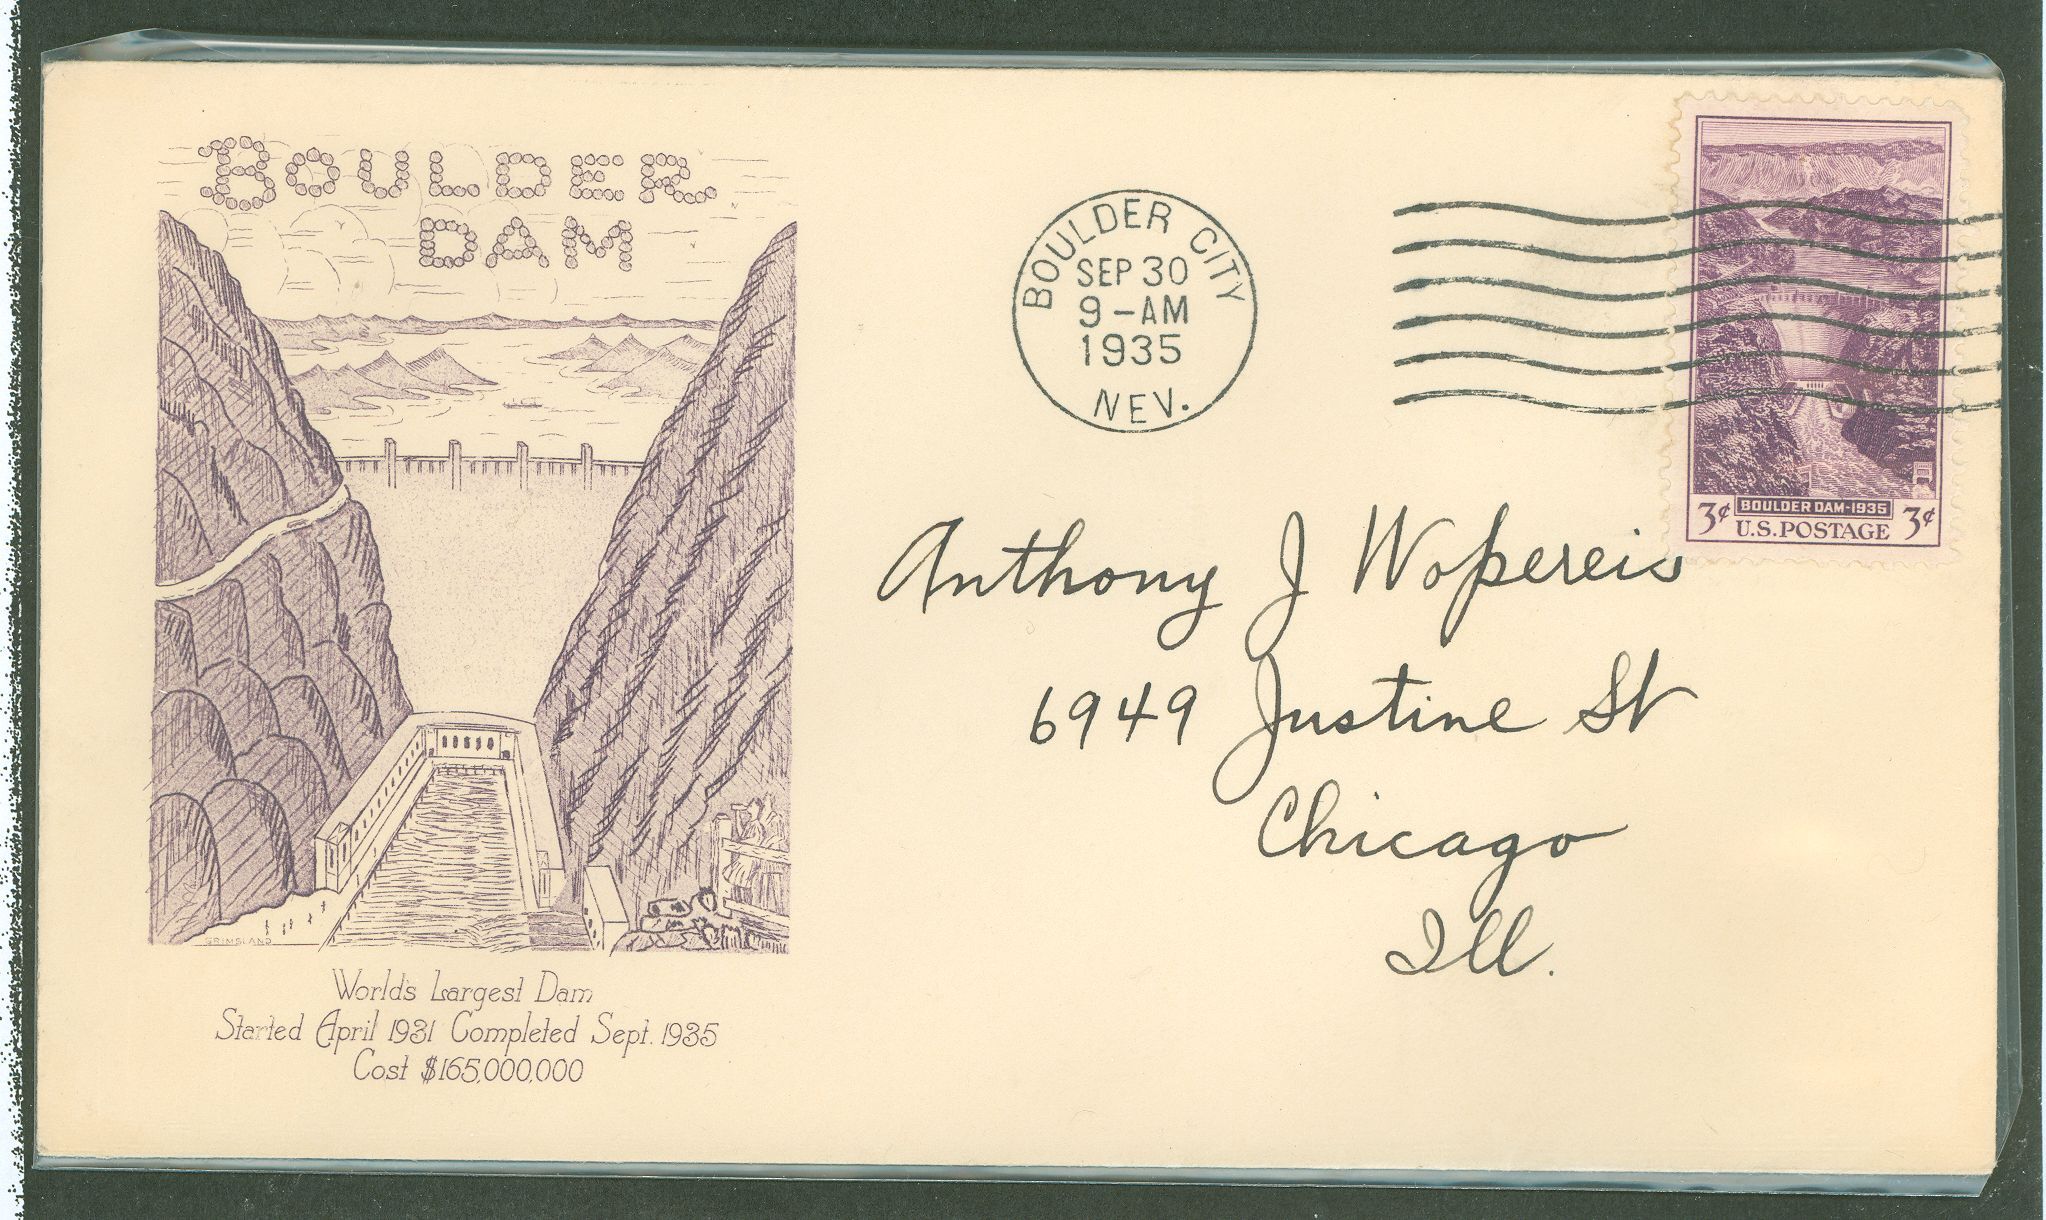 BOULDER
DAM
GRIMSLAND
World's Largest Dam
Started April 1931 Completed Sept. 1935
Cost $165,000,000
BOULDER CITY
SEP 30
9-AM
1935
NEV.
3¢ BOULDER DAM-1935 3¢
U.S. POSTAGE
Anthony J Wopereis
6949 Justine St
Chicago
Ill.